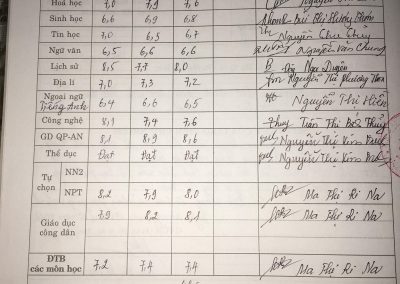 Hoá học 7,0 7,9 7,6
Sinh học 6,6 6,9 6,8
Tin học 7,0 6,3 6,7 Nguyễn Chu Thuỳ
Ngữ văn 6,5 6,6 6,6 Nguyễn Văn Chung
Lịch sử 8,5 7,7 8,0 Ngọc Duyên
Địa lí 7,0 7,3 7,2 Nguyễn Thị Phương
Ngoại ngữ
Tiếng Anh 6,4 6,6 6,5 Nguyễn Thị Hiền
Công nghệ 8,1 7,4 7,6 Thuỷ Trần Thị Bích Thuỷ
GD QP-AN 8,1 8,9 8,6 Nguyễn Thị Kim
Thể dục Đạt Đạt Đạt Nguyễn Thị Kim
Tự chọn NN2
NPT 8,2 7,9 8,0 Ma Thị Ri Na
Giáo dục công dân 7,9 8,2 8,1 Ma Thị Ri Na
ĐTB các môn học 7,2 7,4 7,4 Ma Thị Ri Na